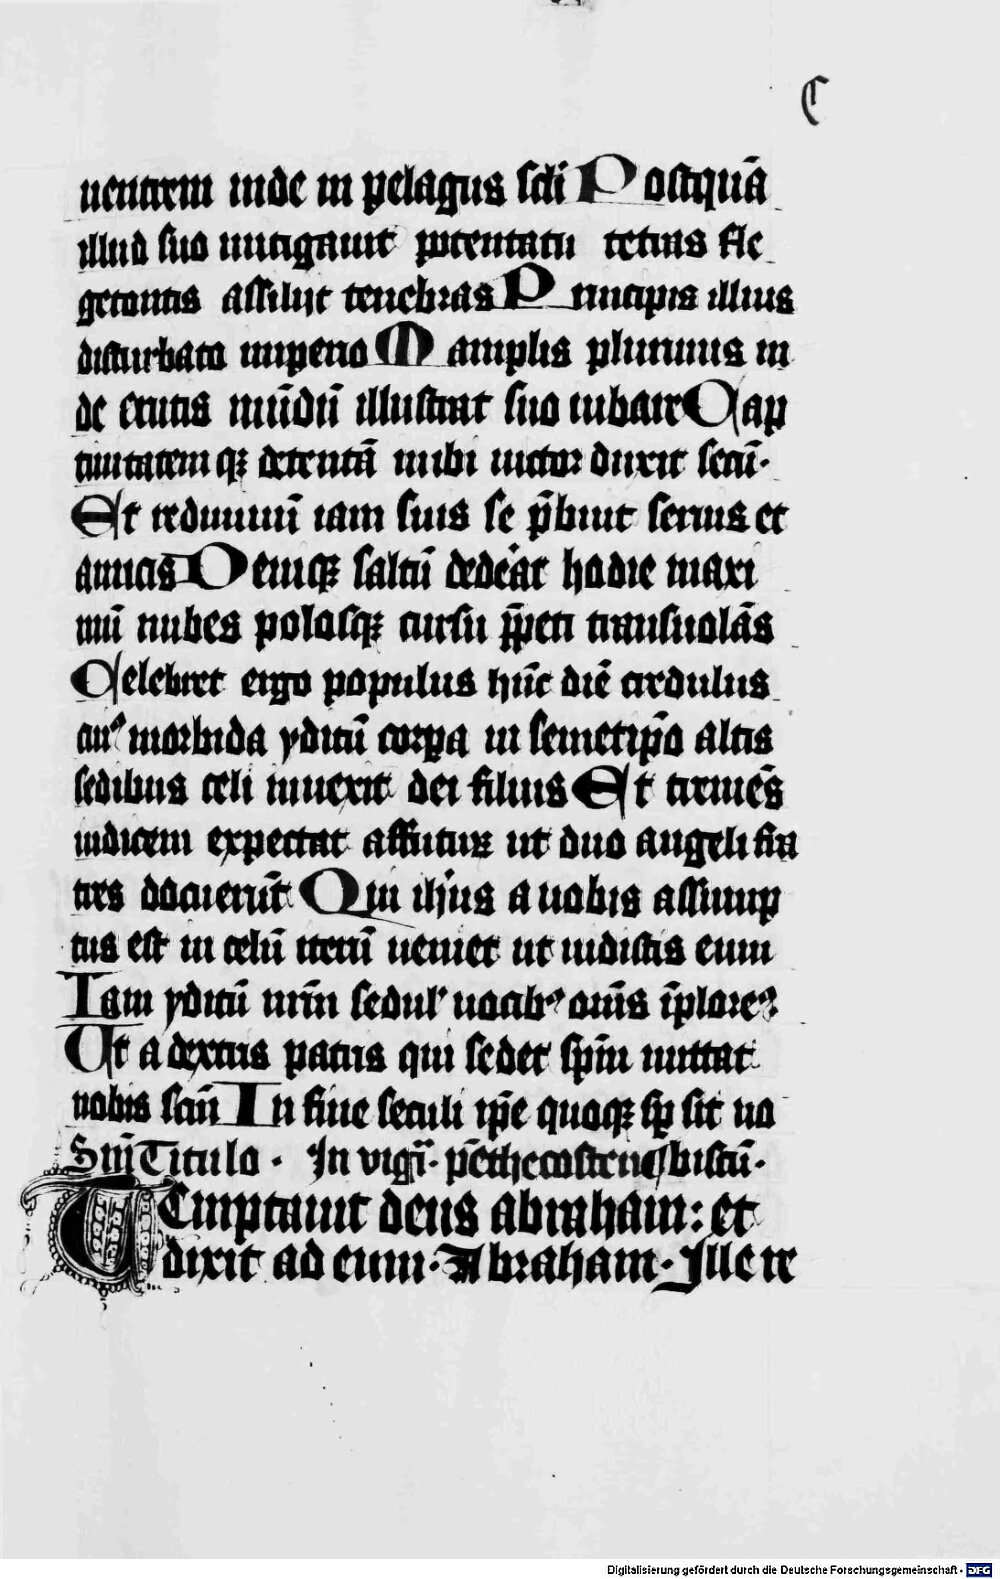 C
uentrem inde in pelagus scli Postquā
illud suo mitigauit potentatu tetras fle
getontis assilijt tenebras Principis illius
disturbato imperio Manipulis plurimis in
de erutis mūdū illustrat suo iubare Cap
tiuitatemqꝫ detentā inibi uictor duxit secū·
Et rediuiuū iam suis se p̄buit seruis et
amicis Deniqꝫ saltū dederat hodie maxi
mū nubes polosqꝫ cursu p̄peti transuolās
Celebret ergo populus hūc diē credulus
cuꝰ morbida yditū corꝑa in semetip̄o altis
sedibus celi inuexit dei filius Et tremēs
iudicem expectat affuturꝫ ut duo angeli fra
tres docuerūt Qui ih̄us a uobis assump
tus est in celū iterū ueniet ut uidistis eum
Iam yditū nrm̄ sedul' uocibꝰ om̄s īploreꝰ·
Ut a dextris patris qui sedet spm̄ mittat
nobis scm̄ In fine seculi ip̄e quoqꝫ sꝑ sit no
Sm̄ Titulo · In vigī· pēthecosten Cbistū·
Temptauit deus abraham: et
dixit ad eum· Abraham· Ille re
Digitalisierung gefördert durch die Deutsche Forschungsgemeinschaft - DFG